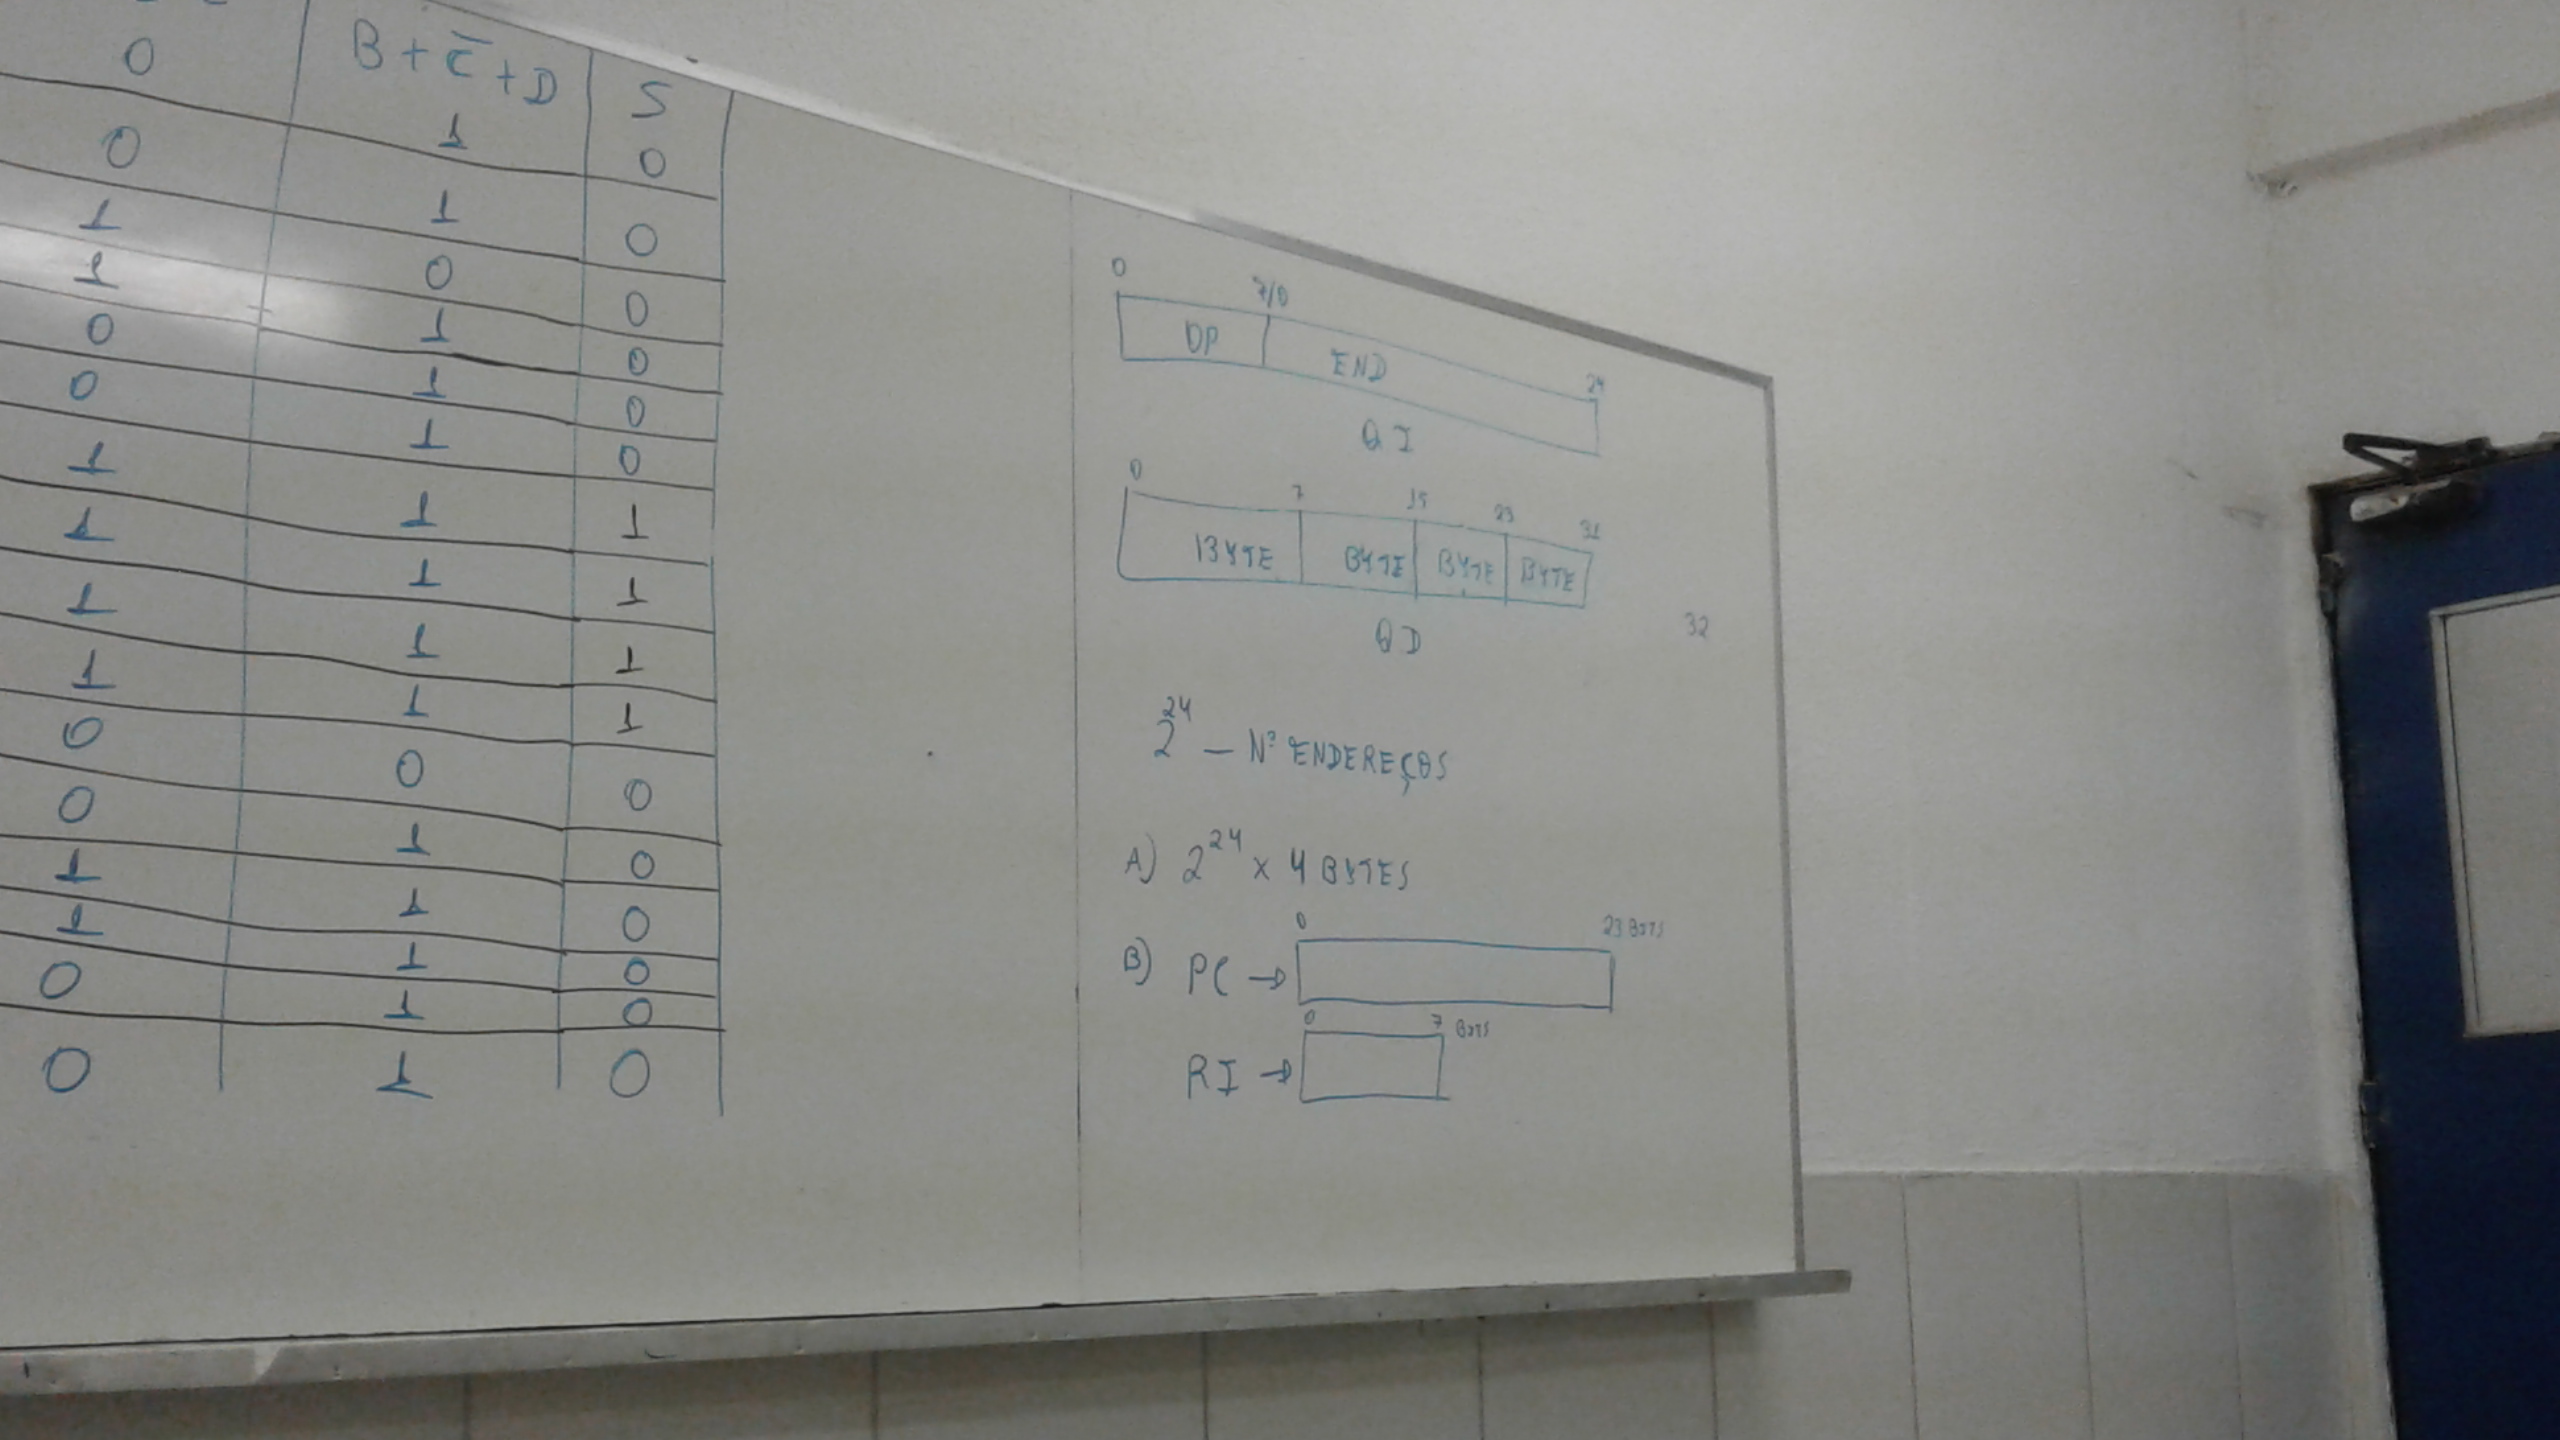 B + C̅ + D S
0 1 0
0 1 0
1 0 0
1 1 0
0 1 0
0 1 0
1 1 1
1 1 1
1 1 1
1 1 1
0 0 0
0 1 0
1 1 0
1 1 0
0 1 0
0 1 0
0 7/0 24
OP END
QI
0 7 15 23 31
BYTE BYTE BYTE BYTE
QD
32
2^24 — Nº ENDEREÇOS
A) 2^24 x 4 BYTES
0 23 BITS
B) PC →
0 7 BITS
RI →